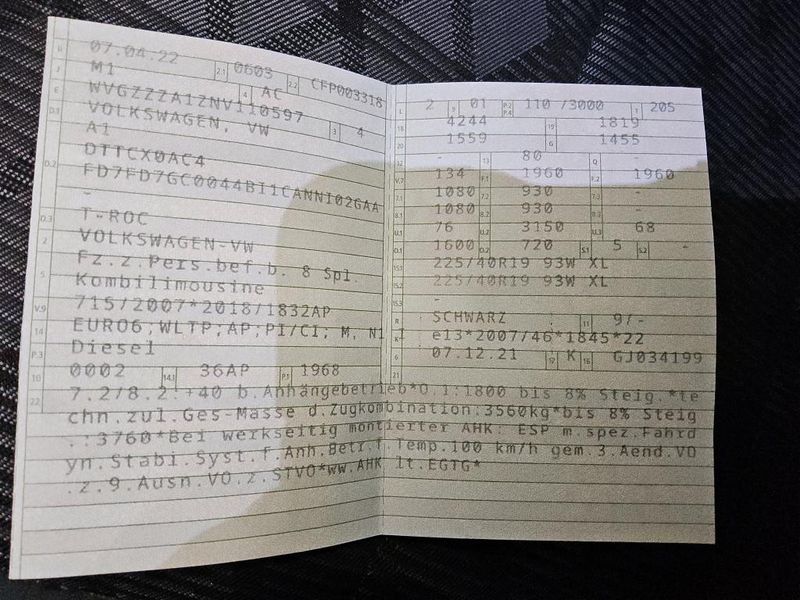 B 07.04.22 2.1 0603 2.2 CFP003318
J M1 4 AC
E WVGZZZA1ZNV110597 3 4
D.1 VOLKSWAGEN, VW
A1
D.2 OTTCX0AC4
FD7FD7GC0044BI1CANNI02GAA
-
D.3 T-ROC
2 VOLKSWAGEN-VW
5 Fz.z.Pers.bef.b. 8 Spl.
Kombilimousine
V.9 715/2007*2018/1832AP
14 EURO6;WLTP;AP;PI/CI; M, N1 I
P.3 Diesel
10 0002 14.1 36AP P.1 1968
L 2 9 01 P.2 P.4 110 /3000 T 205
18 4244 19 1819
20 1559 G 1455
12 - 13 80 Q -
V.7 134 F.1 1960 F.2 1960
7.1 1080 7.2 930 7.3 -
8.1 1080 8.2 930 8.3 -
U.1 76 U.2 3150 U.3 68
O.1 1600 O.2 720 S.1 5 S.2 -
15.1 225/40R19 93W XL
15.2 225/40R19 93W XL
15.3 -
R SCHWARZ 11 9/-
K e13*2007/46*1845*22
6 07.12.21 17 K 16 GJ034199
21
22 7.2/8.2:+40 b.Anhängebetrieb*O.1:1800 bis 8% Steig.*te
chn.zul.Ges-Masse d.Zugkombination:3560kg*bis 8% Steig
.:3760*Bei werkseitig montierter AHK: ESP m.spez.Fahrd
yn.Stabi.Syst.f.Anh.Betr.f.Temp.100 km/h gem.3.Aend.VO
.z.9.Ausn.VO.z.STVO*ww.AHK lt.EGTG*